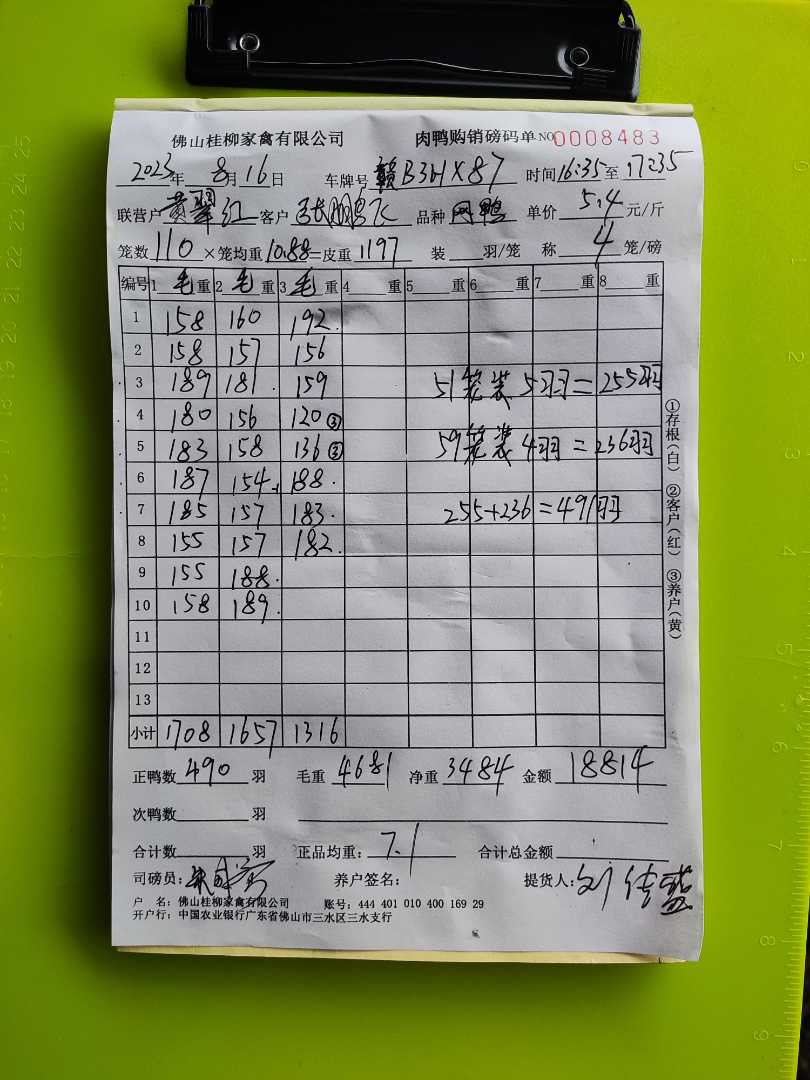 佛山桂柳家禽有限公司 肉鸭购销磅码单 NO 0008483
2023年 8月16日 车牌号 赣B3H×87 时间16:35至17:35
联营户黄翠红 客户 张鹏飞 品种 网鸭 单价 5.4 元/斤
笼数110×笼均重10.88=皮重1197 装 羽/笼 称 4 笼/磅
编号 1毛重 2毛重 3毛重 4 重 5 重 6 重 7 重 8 重
1 158 160 192.
2 158 157 156
3 189 181. 159 51笼装5羽=255羽
4 180 156 120③
5 183 158 136③ 59笼装4羽=236羽
6 187 154 188.
7 185 157 183. 255+236=491羽
8 155 157 182.
9 155 188.
10 158 189.
11
12
13
小计 1708 1657 1316
①存根(白) ②客户(红) ③养户(黄)
正鸭数 490 羽 毛重 4681 净重 3484 金额 18814
次鸭数 羽
合计数 羽 正品均重: 7.1 合计总金额
司磅员: 养户签名: 提货人:
户 名: 佛山桂柳家禽有限公司 账号: 444 401 010 400 169 29
开户行: 中国农业银行广东省佛山市三水区三水支行